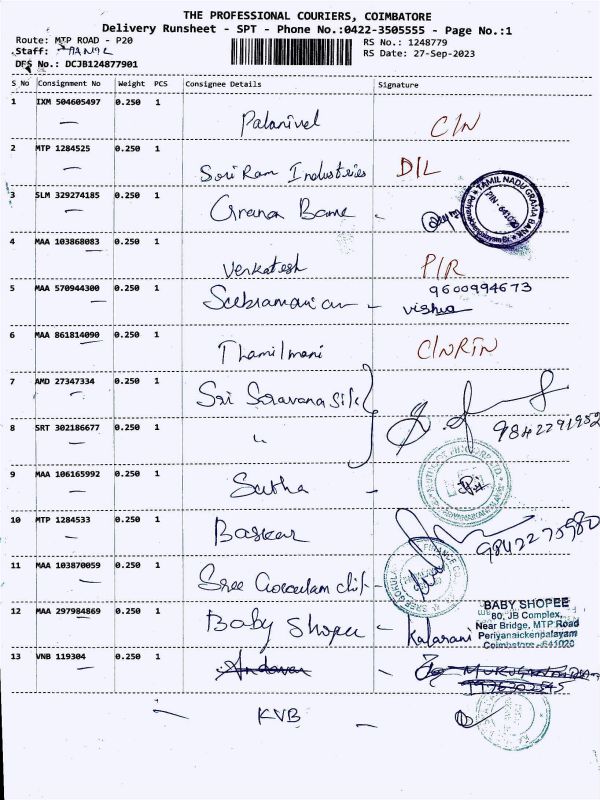 THE PROFESSIONAL COURIERS, COIMBATORE
Delivery Runsheet - SPT - Phone No.:0422-3505555 - Page No.:1
Route: MTP ROAD - P20
RS No.: 1248779
Staff:
RS Date: 27-Sep-2023
DFS No.: DCJB124877901
S No Consignment No Weight PCS Consignee Details Signature
1 IXM 504605497 0.250 1
Palanivel C/N
2 MTP 1284525 0.250 1
Sri Ram Industries D/L
3 SLM 329274185 0.250 1
Grama Bank TAMIL NADU GRAMA BANK
PIN - 641020
4 MAA 103868083 0.250 1
Venkatesh P/R
5 MAA 570944300 0.250 1 9600994673
Subramanian
6 MAA 861814090 0.250 1
Thamilmani C/NRTN
7 AMD 27347334 0.250 1
Sri Saravana Silk
8 SRT 302186677 0.250 1 9842291952
"
9 MAA 106165992 0.250 1
Sutha
10 MTP 1284533 0.250 1
Baskar 9842275980
11 MAA 103870059 0.250 1
Sree Gokulam chit
12 MAA 297984869 0.250 1
Baby Shopee Kalarani
BABY SHOPEE
80, JB Complex,
Near Bridge, MTP Road
Periyanaickenpalayam
Coimbatore -641020
13 VNB 119304 0.250 1
KVB